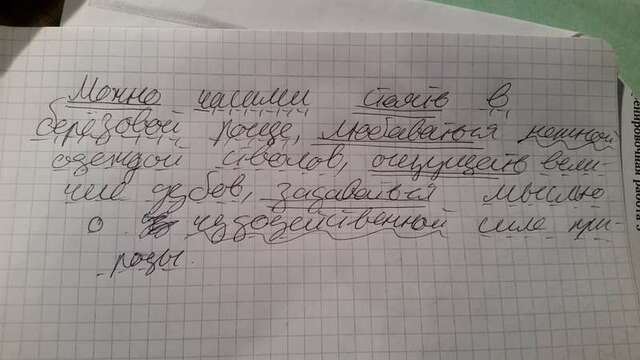 Можно часами стоять в
берёзовой роще, любоваться нежной
одеждой стволов, ощущать вели-
чие дубов, задаваться мыслью
о чудодейственной силе при-
роды.